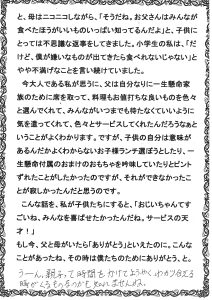 と、母はニコニコしながら、「そうだね。お父さんはみんなが
食べたほうがいいものいっぱい知ってるんだよ」と、子供に
とっては不思議な返事をしてきました。小学生の私は、「だ
けど、僕が嫌いなものが出てきたら食べれないじゃない」と
やや不満げなことを言い続けていました。
今大人である私が思うに、父は自分なりに一生懸命家
族のために席を取って、料理もお値打ちな良いものを色々
と選んでくれて、みんながいつまでも待たなくていいように
気を遣ってくれて、色々とサービスしてくれたんだろうなぁと
いうことがよくわかります。ですが、子供の自分は意味が
あるんだかよくわからないお子様ランチ選ぼうとしたり、一
生懸命付属のおまけのおもちゃを吟味していたりとピント
ずれたことがしたかったのですが、それができなかったこ
とが寂しかったんだと思うのです。
こんな話を、私が子供たちにすると、「おじいちゃんてす
ごいね、みんなを喜ばせたかったんだね。サービスの天
才！」
もし今、父と母がいたら「ありがとう」といえたのに。こんな
ことがあったね、その時は僕たちのためにありがとう。と。
うーん、親子って時間をかけてようやくわかり合える
時がくるものなのかも知れませんね。